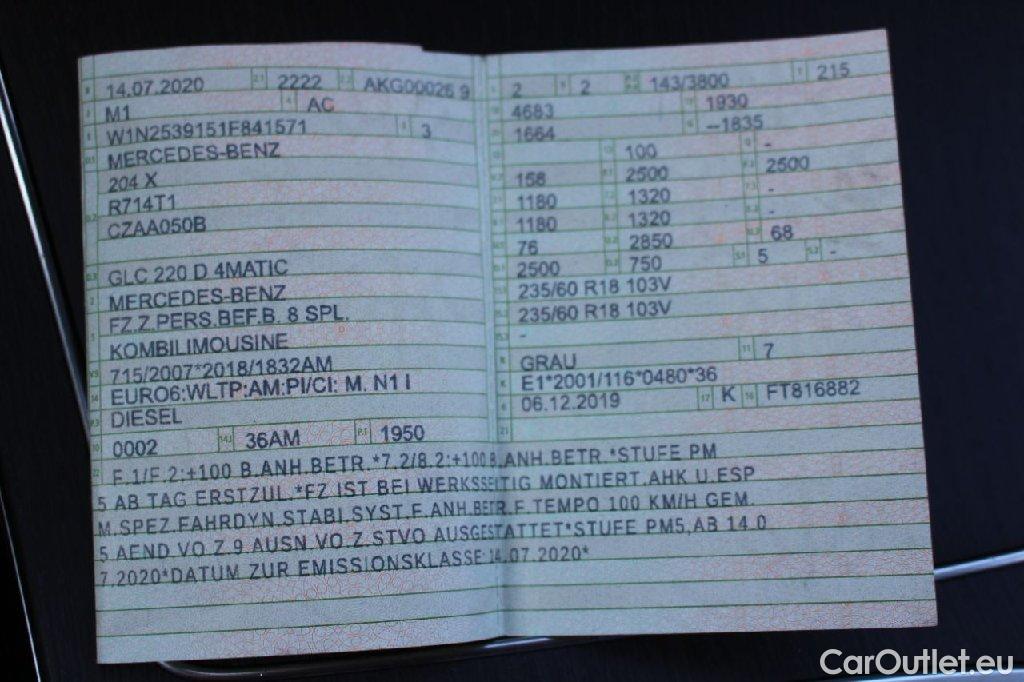 14.07.2020 2222 AKG00026 9
M1 AC
W1N2539151F841571 3
MERCEDES-BENZ
204 X
R714T1
CZAA050B
GLC 220 D 4MATIC
MERCEDES-BENZ
FZ.Z.PERS.BEF.B. 8 SPL.
KOMBILIMOUSINE
715/2007*2018/1832AM
EURO6:WLTP:AM:PI/CI: M, N1 I
DIESEL
0002 36AM 1950
2 2 143/3800 215
4683 1930
1664 –1835
100 -
158 2500 2500
1180 1320 -
1180 1320 -
76 2850 68
2500 750 5 -
235/60 R18 103V
235/60 R18 103V
-
GRAU 7
E1*2001/116*0480*36
06.12.2019 K FT816882
F.1/F.2:+100 B.ANH.BETR.*7.2/8.2:+100 B.ANH.BETR.*STUFE PM
5 AB TAG ERSTZUL.*FZ IST BEI WERKSSEITIG MONTIERT.AHK U.ESP
M.SPEZ.FAHRDYN.STABI.SYST.F.ANH.BETR.F.TEMPO 100 KM/H GEM.
5.AEND.VO.Z.9 AUSN.VO.Z.STVO AUSGESTATTET*STUFE PM5,AB 14.0
7.2020*DATUM ZUR EMISSIONSKLASSE:14.07.2020*
CarOutlet.eu